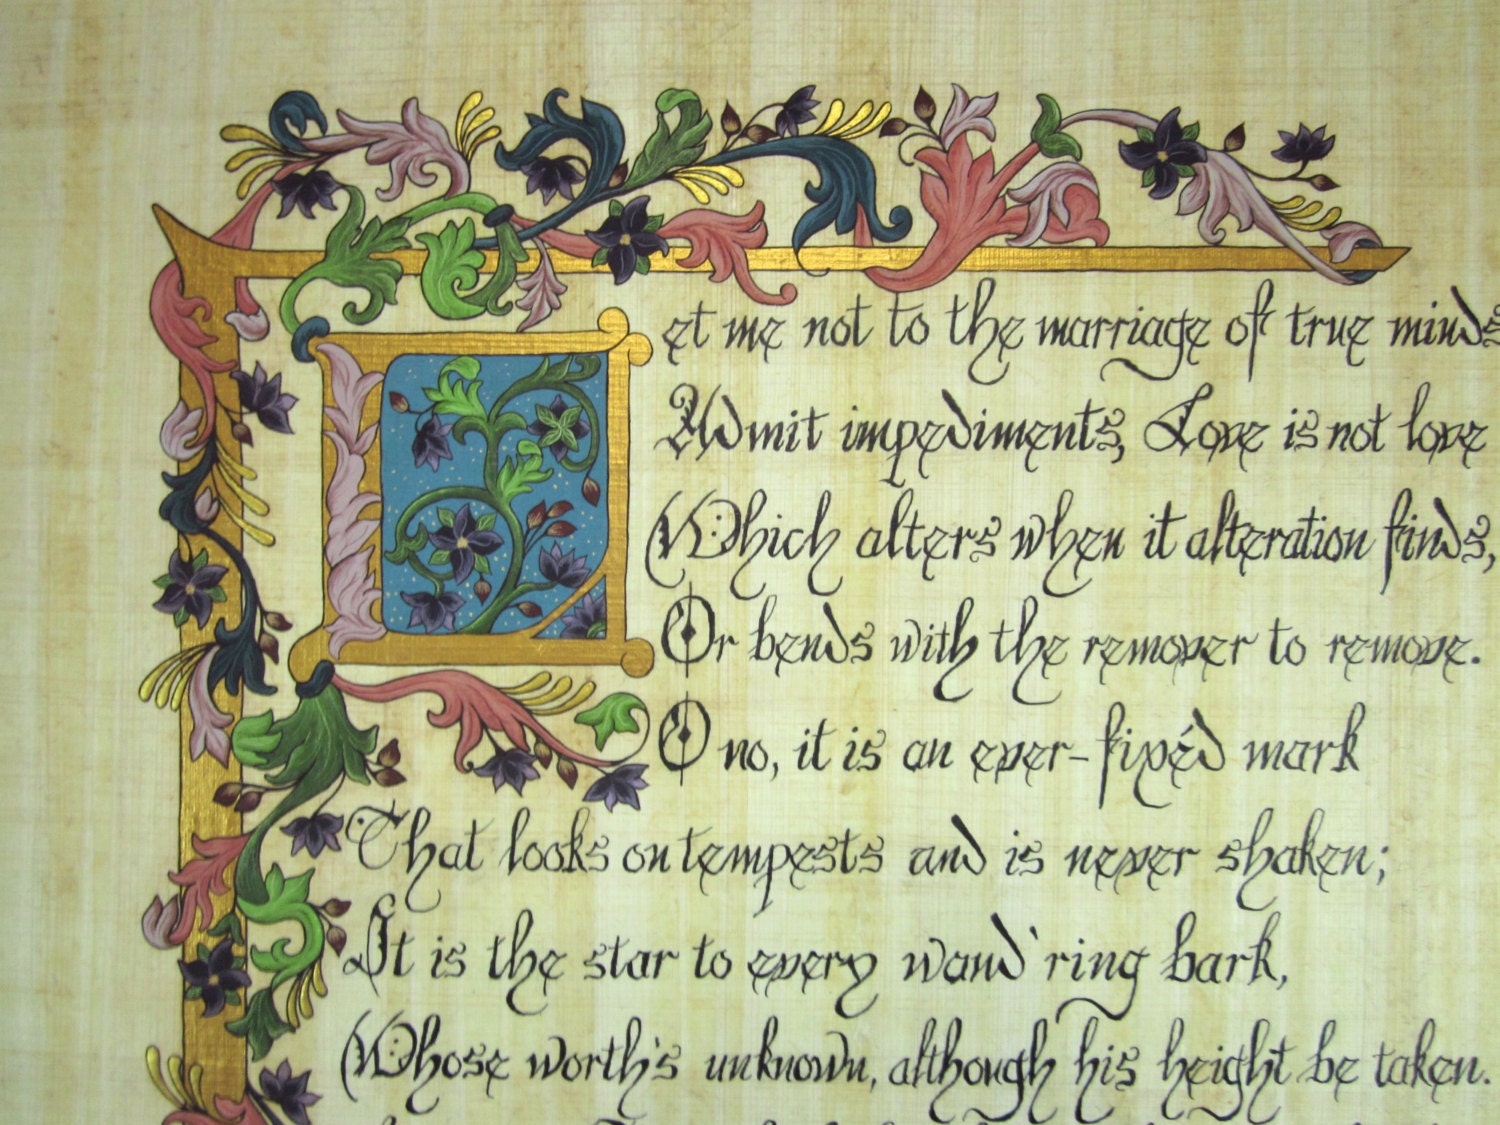 Let me not to the marriage of true minds
Admit impediments, Love is not love
Which alters when it alteration finds,
Or bends with the remover to remove.
O no, it is an ever-fixéd mark
That looks on tempests and is never shaken;
It is the star to every wand'ring bark,
Whose worth's unknown, although his height be taken.